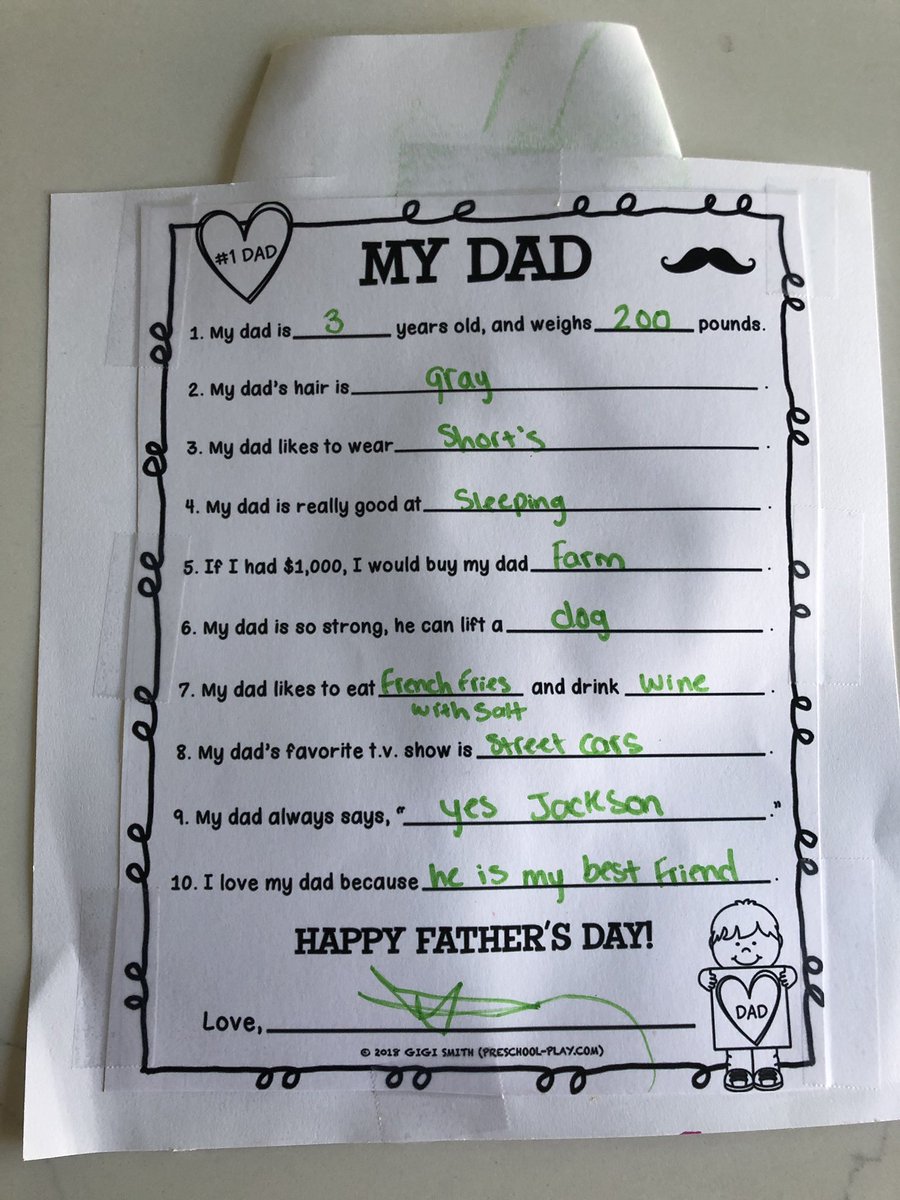 #1 DAD
MY DAD
1. My dad is 3 years old, and weighs 200 pounds.
2. My dad's hair is gray.
3. My dad likes to wear Short's.
4. My dad is really good at Sleeping.
5. If I had $1,000, I would buy my dad Farm.
6. My dad is so strong, he can lift a dog.
7. My dad likes to eat French Fries and drink wine.
with Salt
8. My dad's favorite t.v. show is Street cars.
9. My dad always says, "yes Jackson."
10. I love my dad because he is my best Friend.
HAPPY FATHER'S DAY!
DAD
Love,
© 2018 GIGI SMITH (PRESCHOOL-PLAY.COM)